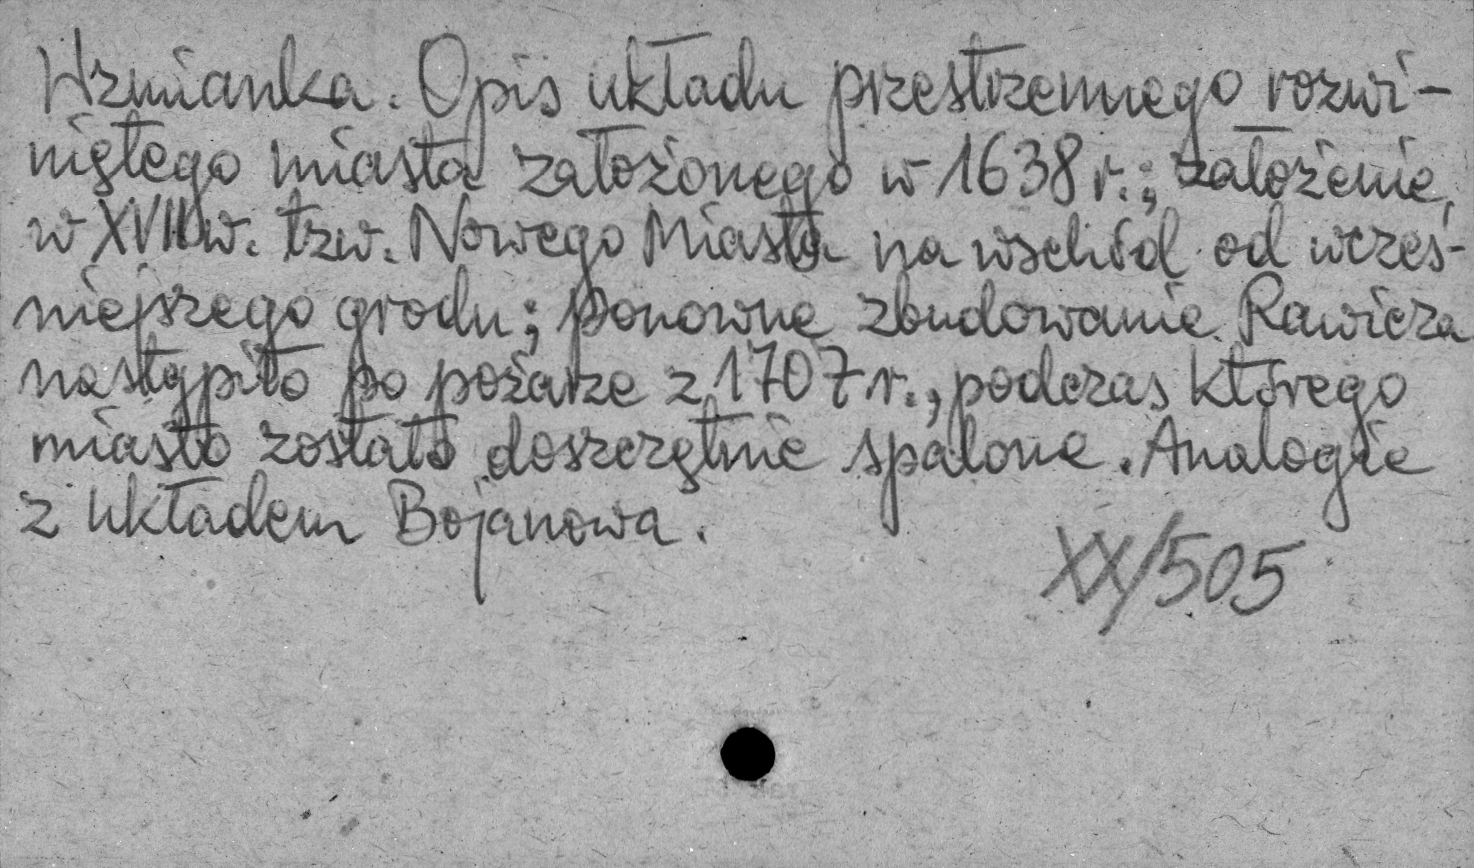 Wzmianka. Opis układu przestrzennego rozwi-
niętego miasta założonego w 1638 r.; założenie,
w XVII w. tzw. Nowego Miasta na wschód od wcześ-
niejszego grodu; ponowne zbudowanie Rawicza
nastąpiło po pożarze z 1707 r., podczas którego
miasto zostało doszczętnie spalone. Analogie
z układem Bojanowa.
XX/505